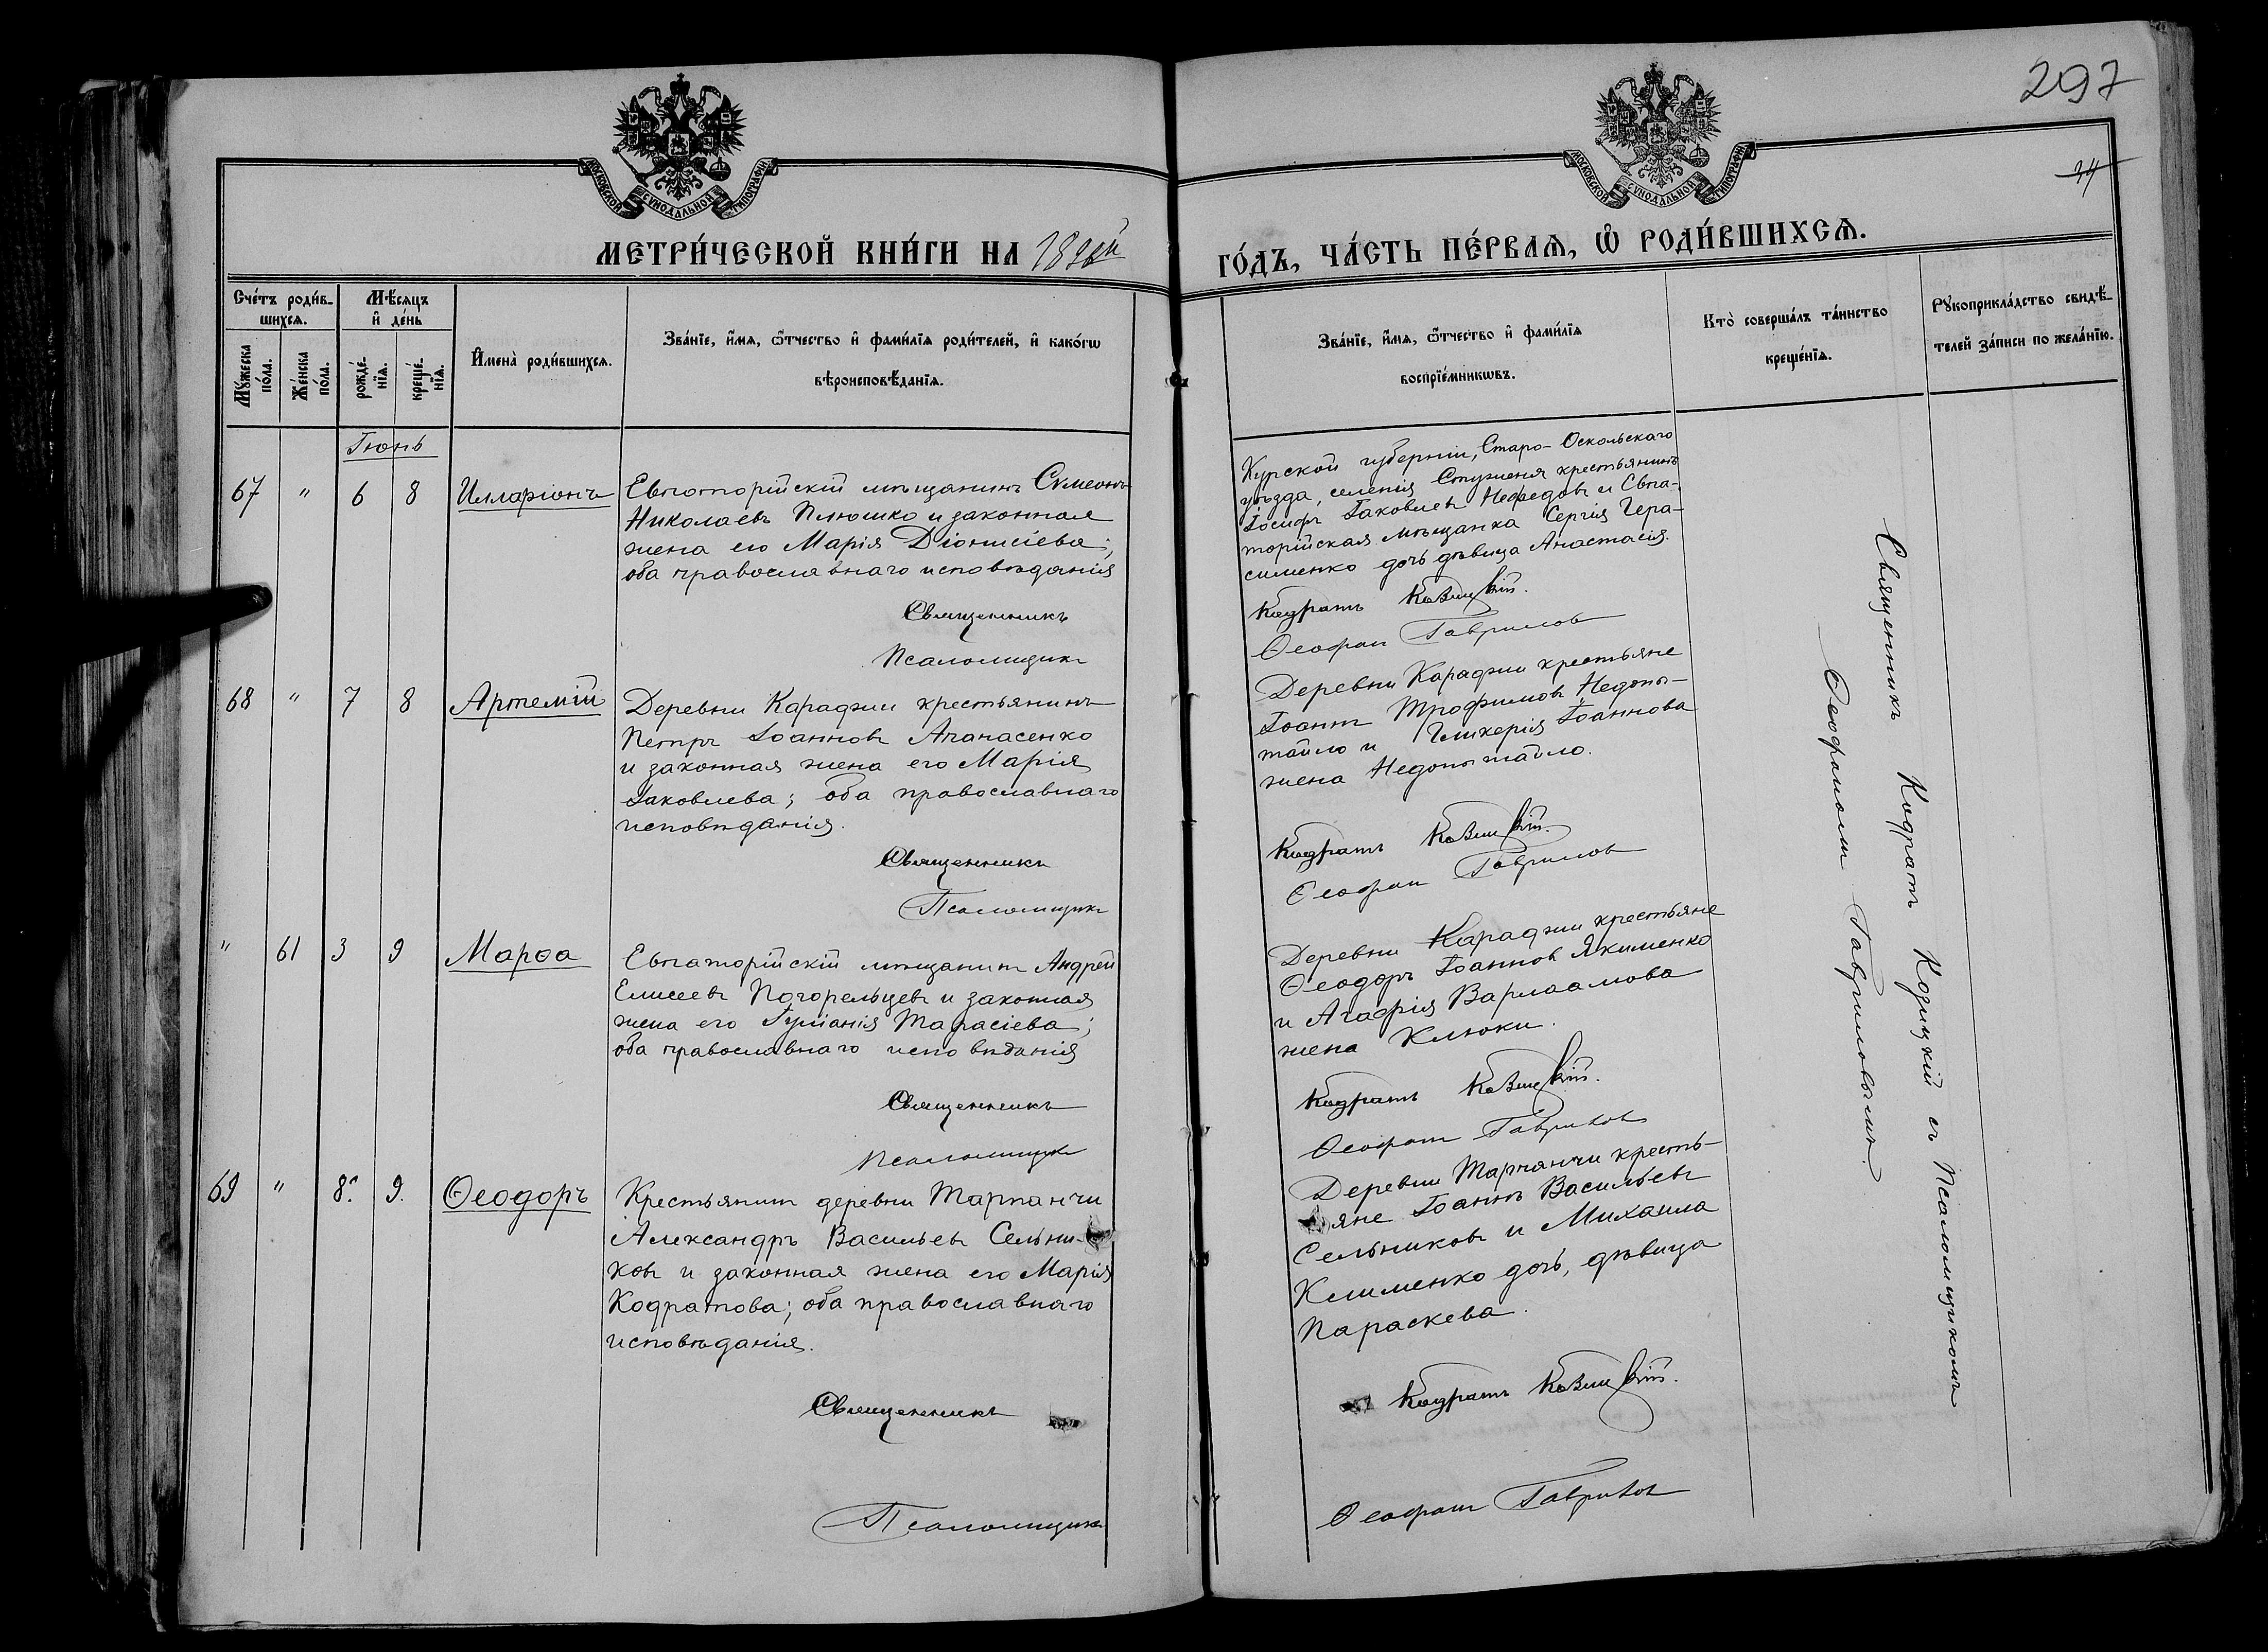 297
24
МОСКОВСКОЙ СѴНОДАЛЬНОЙ ТИПОГРАФІИ
МОСКОВСКОЙ СѴНОДАЛЬНОЙ ТИПОГРАФІИ
МЕТРИ́ЧЕСКОЙ КНИ́ГИ НА
ГО́ДЪ, ЧА́СТЬ ПЕ́РВАѦ, Ѡ РОДИ́ВШИХСѦ.
Сче́тъ роди́в-
шихсѧ.
Мꙋ́жеска
по́ла.
Же́нска
по́ла.
Мѣ́сѧцъ
и҆ де́нь
рожде́-
нїѧ.
креще́-
нїѧ.
И҆мена̀ роди́вшихсѧ.
Зва́нїе, и҆́мѧ, ѻ҆́тчество и҆ фами́лїѧ роди́телей, и҆ како́гѡ
вѣроисповѣ́данїѧ.
Зва́нїе, и҆́мѧ, ѻ҆́тчество и҆ фами́лїѧ
воспрїе́мникѡвъ.
Кто̀ соверша́лъ та́инство
креще́нїѧ.
Рꙋкоприкла́дство свидѣ́-
телей за́писи по жела́нїю.
Іюнь
67 " 6 8 Илларіонъ
Евпаторійскій мѣщанинъ Сѵмеонъ
Николаевъ Плюшко и законная
жена его Марія Діонисіева;
оба православнаго исповѣданія
Священникъ
Псаломщикъ
Курской губерніи, Старо-Оскольскаго
уѣзда, селенія крестьянинъ
Іосифъ Іаковлевъ Нефедовъ и Евпа-
торійская мѣщанка Сергія Гера-
сименко дочь дѣвица Анастасія.
Кодратъ Козицкій.
Ѳеофан Гаврилов
68 " 7 8 Артемій
Деревни Караджи крестьянинъ
Петръ Іоанновъ Апанасенко
и законная жена его Марія
Іаковлева; оба православнаго
исповѣданія.
Священникъ
Псаломщикъ
Деревни Караджи крестьяне
Іоаннъ Трофимовъ Недопы-
тайло и Гликерія Іоаннова
жена Недопытайло.
Кодратъ Козицкій.
Ѳеофан Гаврилов
" 61 3 9 Марѳа
Евпаторійскій мѣщанинъ Андрей
Елисеевъ Погорельцевъ и законная
жена его Іуліанія Тарасіева;
оба православнаго исповѣданія
Священникъ
Псаломщикъ
Деревни Караджи крестьяне
Ѳеодоръ Іоанновъ Якименко
и Агафія Варлаамова
жена Клюки.
Кодратъ Козицкій.
Ѳеофан Гаврилов
69 " 8. 9. Ѳеодоръ
Крестьянинъ деревни Тарпанчи
Александръ Васильевъ Сельни-
ковъ и законная жена его Марія
Кодратова; оба православнаго
исповѣданія.
Священникъ
Псаломщикъ
Деревни Тарпанчи кресть-
яне Іоаннъ Васильевъ
Сельниковъ и Михаила
Клименко дочь, дѣвица
Параскева.
Кодратъ Козицкій.
Ѳеофан Гаврилов
Священникъ Кодратъ Козицкій съ Псаломщикомъ
Ѳеофаномъ Гавриловымъ.